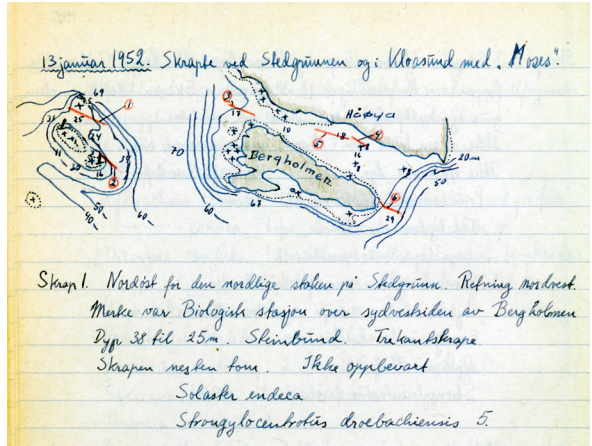 13 januar 1952. Skrapte ved Stedgrunnen og i Kloasund med „Moses“.
69
1
25
31
24
11
30
16
38
2
50
40
60
3
17
Håøya
10
5
18
4
16
8
70
Bergholmen
8
20m
50
60
63
6
29
60
Skrap 1. Nordöst for den nordlige staken på Stedgrunn. Retning nordvest.
Merke var Biologisk stasjon over sydvestsiden av Bergholmen
Dyp 38 til 25m. Steinbund. Trekantskrape
Skrapen nesten tom. Ikke oppbevart
Solaster endeca
Strongylocentrotus droebachiensis 5.